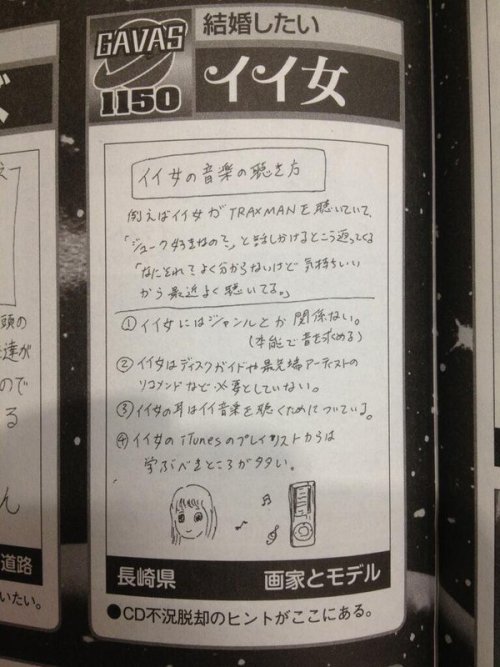 GAVAS
1150
結婚したい
イイ女
イイ女の音楽の聴き方
例えばイイ女がTRAXMANを聴いていて、
「ジューク好きなの?」と話しかけるとこう返ってくる
「なにそれ?よく分からないけど気持ちいい
から最近よく聴いてる。」
①イイ女にはジャンルとか関係ない。
(本能で音を求める)
②イイ女はディスクガイドや最先端アーティストの
リコメンドなど必要としていない。
③イイ女の耳はイイ音楽を聴くためについている。
④イイ女のiTunesのプレイリストからは
学ぶべきところが多い。
長崎県 画家とモデル
●CD不況脱却のヒントがここにある。
頭の
達が
ので
る
ん
道路
いたい。